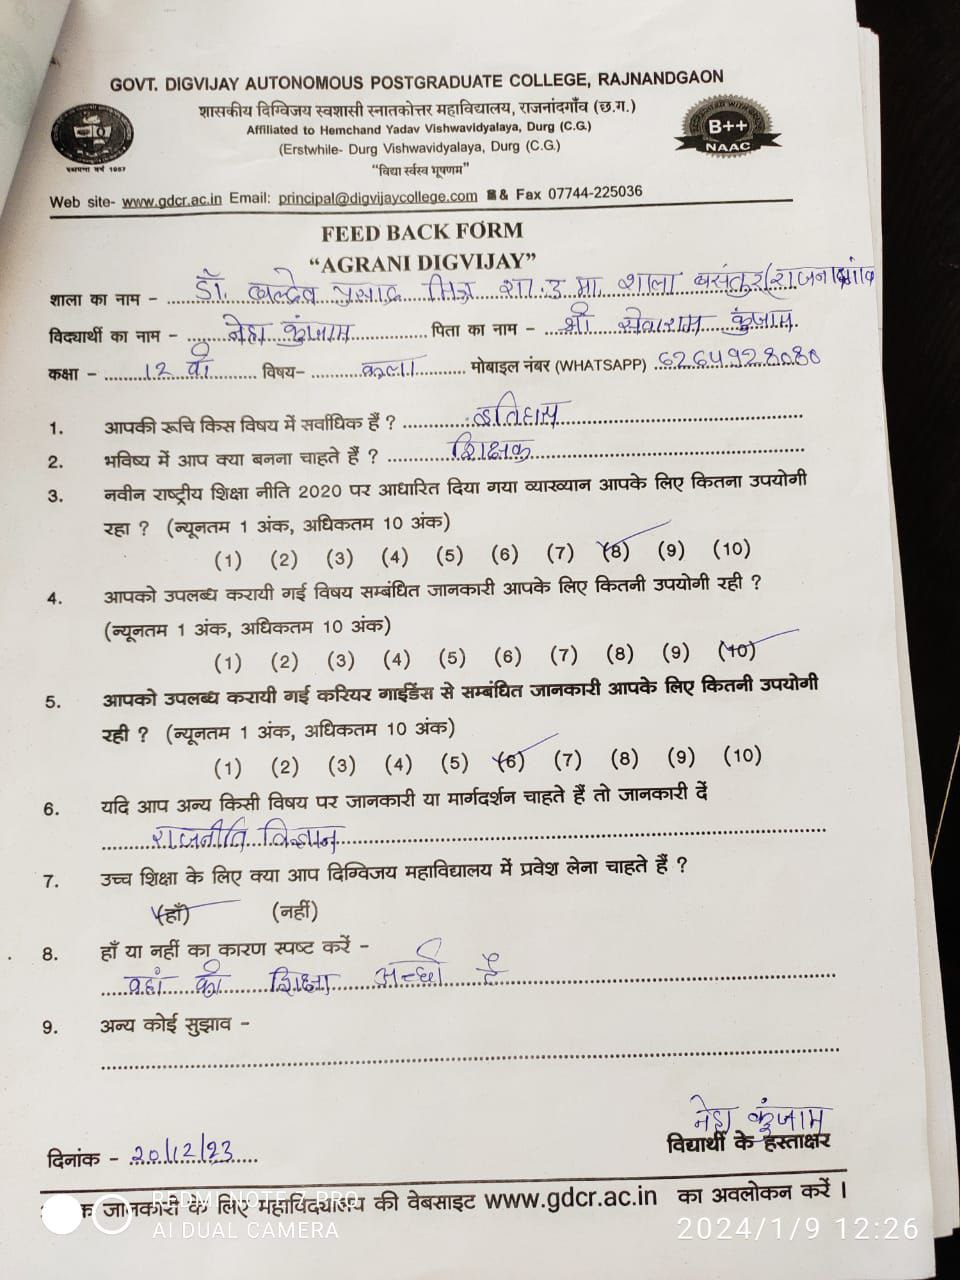 GOVT. DIGVIJAY AUTONOMOUS POSTGRADUATE COLLEGE, RAJNANDGAON
शासकीय दिग्विजय स्वशासी स्नातकोत्तर महाविद्यालय, राजनांदगाँव (छ.ग.)
Affiliated to Hemchand Yadav Vishwavidyalaya, Durg (C.G.)
(Erstwhile- Durg Vishwavidyalaya, Durg (C.G.)
“विद्या र्स्वस्व भूषणम”
स्थापना वर्ष 1957
B++
NAAC
Web site- www.gdcr.ac.in Email: principal@digvijaycollege.com & Fax 07744-225036
FEED BACK FORM
“AGRANI DIGVIJAY”
शाला का नाम - डॉ. बल्देव प्रसाद मिश्र शा. उ मा. शाला बसंतपुर (राजनांदगांव
विद्यार्थी का नाम - नेहा कुंजाम पिता का नाम - श्री सेवाराम कुंजाम
कक्षा - 12 वीं विषय- कला मोबाइल नंबर (WHATSAPP) 6264928080
1. आपकी रूचि किस विषय में सर्वाधिक हैं ? इतिहास
2. भविष्य में आप क्या बनना चाहते हैं ? शिक्षक
3. नवीन राष्ट्रीय शिक्षा नीति 2020 पर आधारित दिया गया व्याख्यान आपके लिए कितना उपयोगी
रहा ? (न्यूनतम 1 अंक, अधिकतम 10 अंक)
(1) (2) (3) (4) (5) (6) (7) (8) (9) (10)
4. आपको उपलब्ध करायी गई विषय सम्बंधित जानकारी आपके लिए कितनी उपयोगी रही ?
(न्यूनतम 1 अंक, अधिकतम 10 अंक)
(1) (2) (3) (4) (5) (6) (7) (8) (9) (10)
5. आपको उपलब्ध करायी गई करियर गाईडेंस से सम्बंधित जानकारी आपके लिए कितनी उपयोगी
रही ? (न्यूनतम 1 अंक, अधिकतम 10 अंक)
(1) (2) (3) (4) (5) (6) (7) (8) (9) (10)
6. यदि आप अन्य किसी विषय पर जानकारी या मार्गदर्शन चाहते हैं तो जानकारी दें
राजनीति विज्ञान
7. उच्च शिक्षा के लिए क्या आप दिग्विजय महाविद्यालय में प्रवेश लेना चाहते हैं ?
(हाँ) (नहीं)
8. हाँ या नहीं का कारण स्पष्ट करें -
वहां की शिक्षा अच्छी है
9. अन्य कोई सुझाव -
नेहा कुंजाम
दिनांक - 20/12/23 विद्यार्थी के हस्ताक्षर
क जानकारी के लिए महाविद्यालय की वेबसाइट www.gdcr.ac.in का अवलोकन करें ।
REDMI NOTE 7 PRO
AI DUAL CAMERA
2024/1/9 12:26